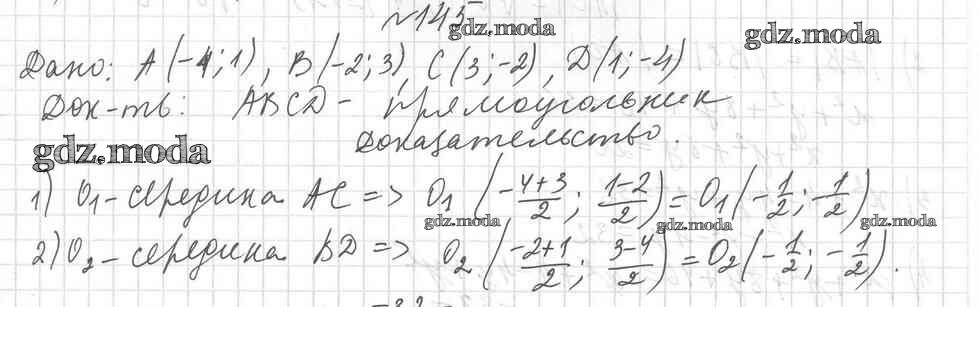 №145
gdz.moda
gdz.moda
Дано: A(-4;1), B(-2;3), C(3;-2), D(1;-4)
Док-ть: ABCD - прямоугольник
Доказательство.
gdz.moda
1) O₁-середина AC => O₁(\frac{-4+3}{2}; \frac{1-2}{2}) = O₁(-\frac{1}{2}; -\frac{1}{2})
gdz.moda gdz.moda gdz.moda
2) O₂-середина BD => O₂(\frac{-2+1}{2}; \frac{3-4}{2}) = O₂(-\frac{1}{2}; -\frac{1}{2}).